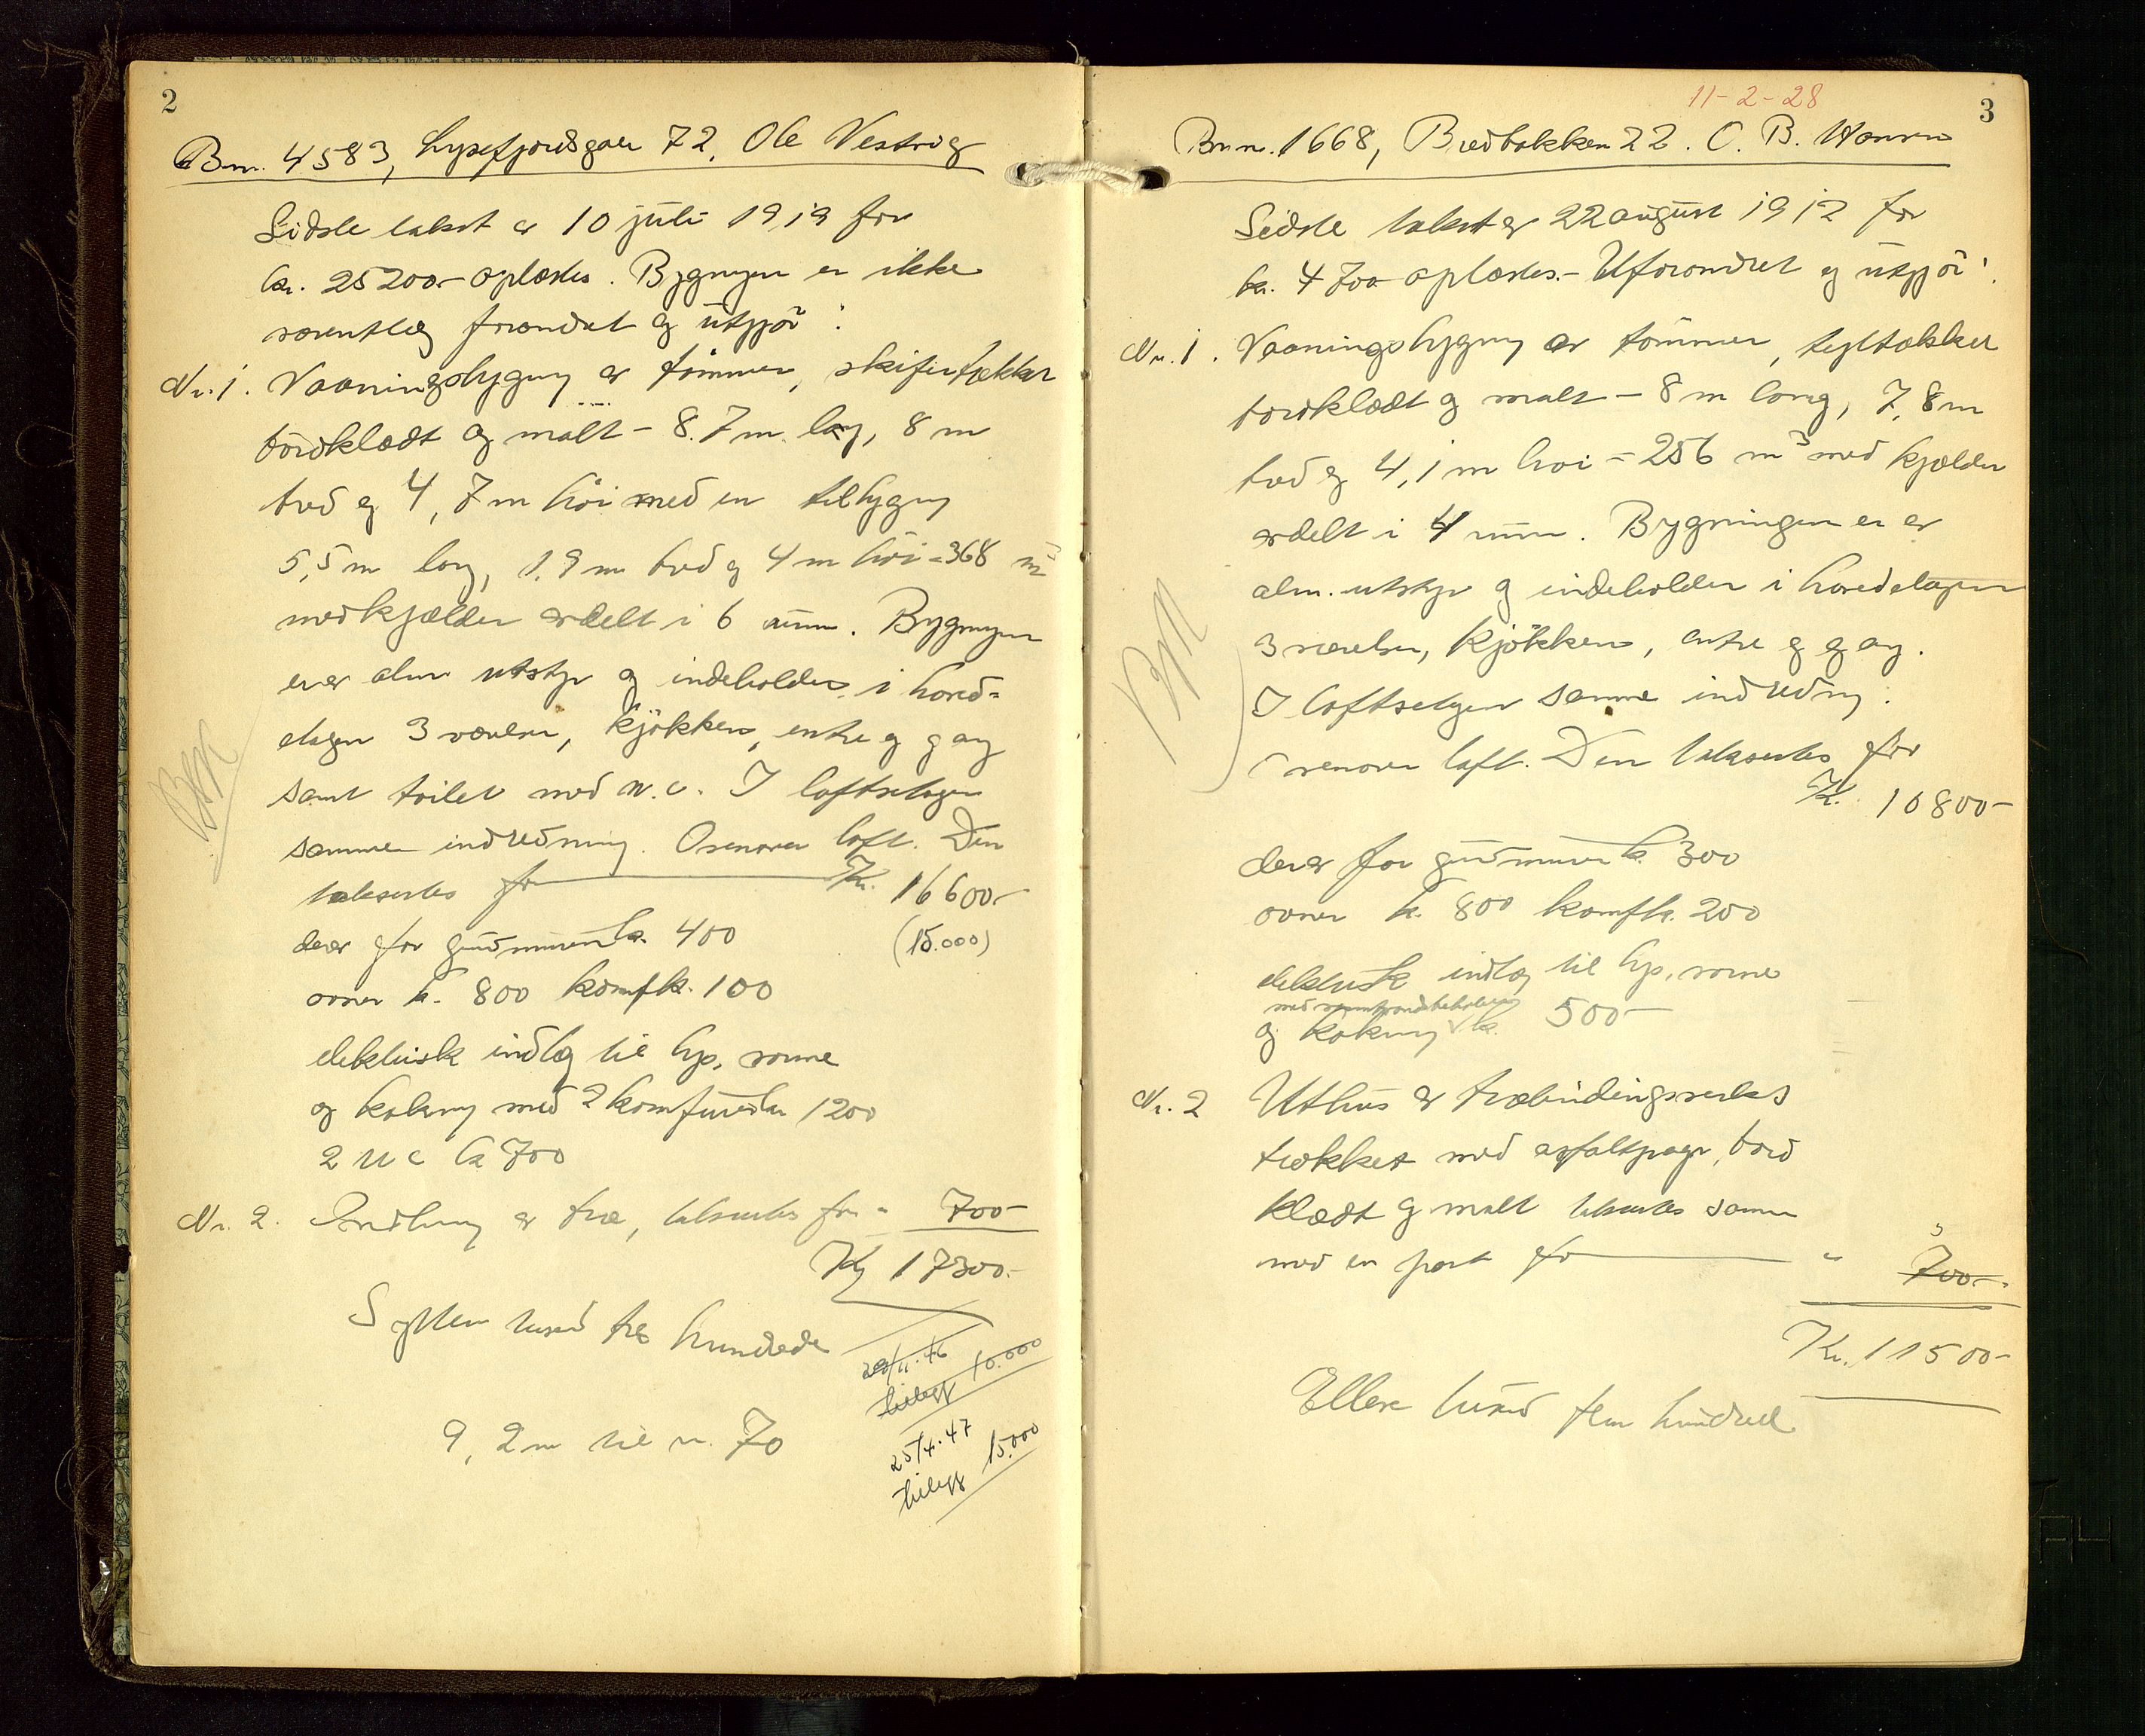 2
Bnr. 4583, Lysefjordsgaten 72, Ole Vestvig
Sidste takst er 10 juli 1919 for
kr. 25200.- oplæstes. Bygningen er ikke
væsentlig forandret og utgjör:
Nr. 1. Vaaningsbygning av tömmer, skifertækket
bordklædt og malt - 8.7 m. lang, 8 m
bred og 4,7 m höi med en tilbygning
5,5 m lang, 1,9 m bred og 4 m höi = 368 m³
med kjælder avdelt i 6 rum. Bygningen
er av alm utstyr og indeholder i hoved-
etagen 3 værelser, kjökken, entre og gang
samt toilet med w.c. I loftsetagen
samme indredning. Ovenover loft. Den
takseres for Kr. 16600.-
derav for grundmuren kr. 400 (15.000)
ovner kr. 800 komf kr. 100
elektrisk indlæg til lys, varme
og kokning med 2 komfurer kr 1200
2 W c kr 700
Nr. 2. Indhegning av træ, takseres for " 700-
Kr 17300.-
Sytten tusind tre hundrede
20/11.46
tillegg 10.000
9,2 m til nr. 70
25/4.47
tillegg 15.000
BN
11-2-28
3
Bnr. 1668, Bredbakken 22. O. B. Hansen
Sidste takst er 22 august 1912 for
kr. 4700 oplæstes.- Uforandret og utgjör:
Nr. 1. Vaaningsbygning av tömmer, tegltækket
bordklædt og malt - 8 m lang, 7,8 m
bred og 4,1 m höi = 256 m³ med kjælder
avdelt i 4 rum. Bygningen er av
alm. utstyr og indeholder i hovedetagen
3 værelser, kjökken, entre og gang.
I loftsetagen samme indredning.
Ovenover loft. Den takseres for
Kr. 10800-
derav for grundmuren kr. 300
ovner kr. 800 komf kr. 200
elektrisk indlæg til lys, varme
og kokning kr. 500-
Nr. 2 Uthus av træbindingsverk
trækket med asfaltpapp, bord
klædt og malt takseres sammen
med en port for " 700-
Kr. 11500-
Elleve tusind fem hundrede